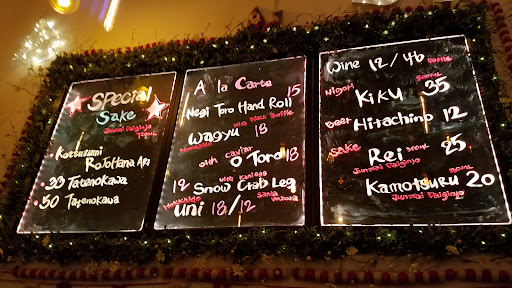 SPecial
Sake
Junmai Daiginjo
720ML
Katsuzumi
RoJoHana ARi
33 Tatenokawa
50 Tatenokawa
A la Carte
Negi Toro Hand Roll 15
with Black Truffle
Wagyu 18
Hokkaido
with caviar
O Toro 18
with Kanizo
12 Snow Crab Leg
Hokkaido Santa Barbara
Uni 18/12
Wine 12/46 Bottle
Nigori 300ML
KiKU 35
Beer Hitachino 12
Sake 300ML
Rei 25
Junmai Daiginjo
Kamotsuru 20
Junmai Daiginjo